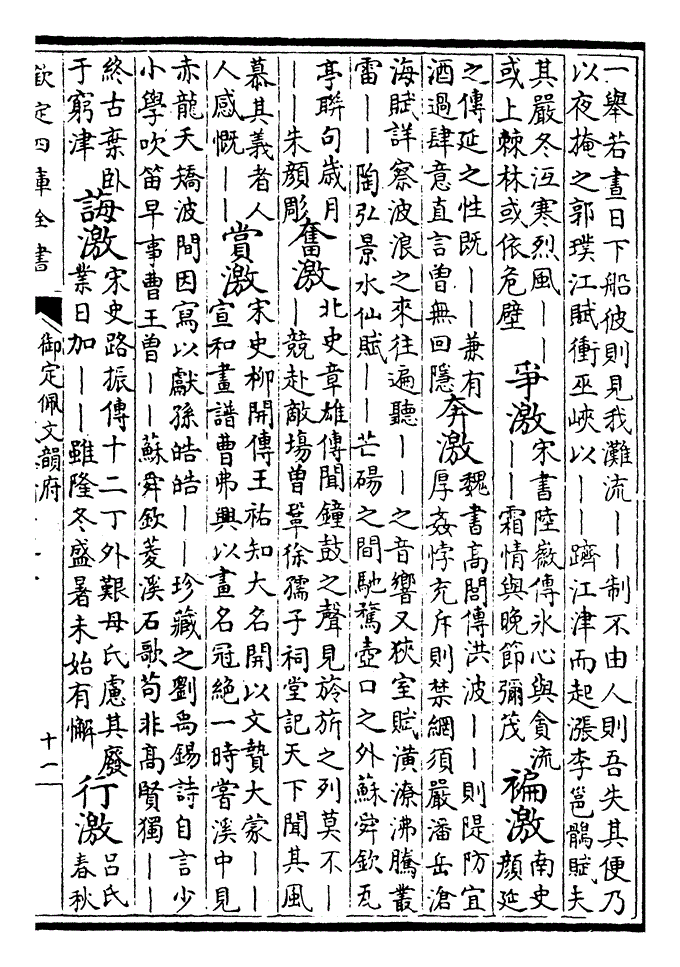 一舉若晝日下船彼則見我灘流丨丨制不由人則吾失其便乃
以夜掩之郭璞江賦衝巫峽以丨丨躋江津而起漲李邕鶻賦夫
其嚴冬沍寒烈風丨丨
或上棘林或依危壁
爭激
宋書陸厥傳氷心與貪流
丨丨霜情與晚節彌茂
褊激
南史
顔延
之傳延之性既丨丨兼有
酒過肆意直言曾無回隱
奔激
魏書高閭傳洪波丨丨則隄防宜
厚姦悖充斥則禁網須嚴潘岳滄
海賦詳察波浪之來往遍聽丨丨之音響又狹室賦潢潦沸騰叢
霤丨丨陶弘景水仙賦丨丨芒碭之間馳騖壺口之外蘇舜欽瓦
亭聯句歲月
丨丨朱顔彫
奮激
北史章雄傳聞鐘鼓之聲見旍旂之列莫不丨
丨競赴敵場曾鞏徐孺子祠堂記天下聞其風
慕其義者人
人感慨丨丨
賞激
宋史柳開傳王祐知大名開以文贄大蒙丨丨
宣和畫譜曹弗興以畫名冠絶一時嘗溪中見
赤龍夭矯波間因寫以獻孫皓皓丨丨珍藏之劉禹錫詩自言少
小學吹笛早事曹王曾丨丨蘇舜欽菱溪石歌苟非高賢獨丨丨
終古棄卧
于窮津
誨激
宋史路振傳十二丁外艱母氏慮其廢
業日加丨丨雖隆冬盛暑未始有懈
行激
呂氏
春秋
欽定四庫全書
御定佩文韻府
十一